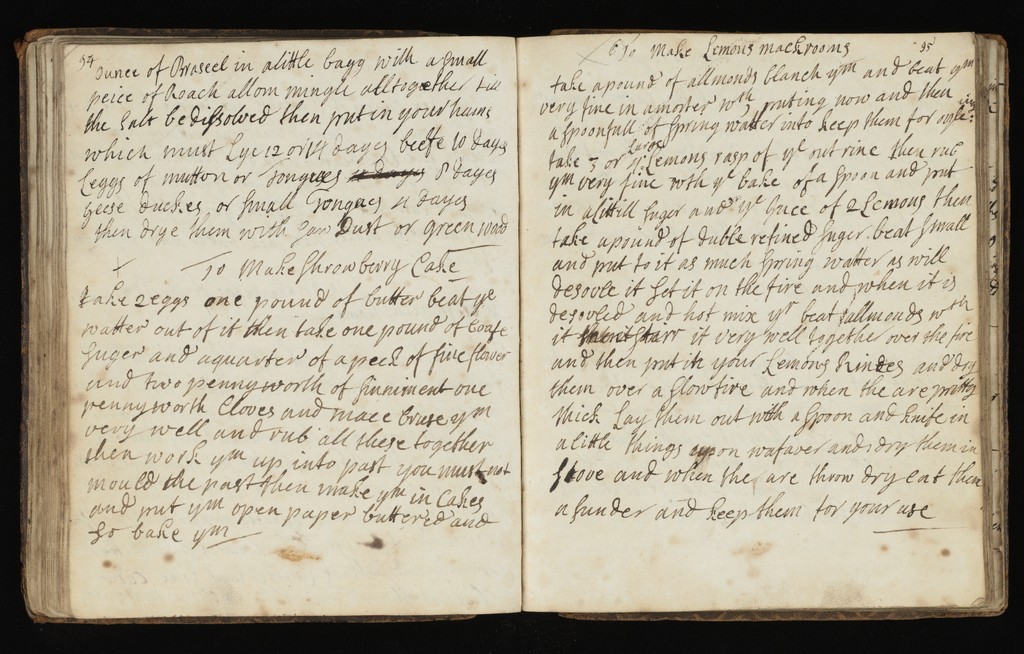 94
ounce of Braseel in alittle bagg with a small
peice of Roach allom mingle alltogether till
the salt be dissolved then put in your hams
which must Lye 12 or 14 dayes beefe 10 dayes
Leggs of mutton or Tongues 8 dayes
geese duckes or small Tongues 4 dayes
then drye them with saw Dust or green wood
To Make Shrowberry Cake
take 2 eggs one pound of butter beat ye
watter out of it then take one pound of Loafe
suger and aquarter of a peck of fine flower
and two pennyworth of sinniment one
pennyworth Cloves and mace bruse ym
very well and rub all these together
then work ym up into past you must not
mould the past then make ym in Cakes
and put ym open paper buttered and
so bake ym
95
To Make Lemons mackrooms
take apound of allmonds blanch ym and beat ym
very fine in amorter wth puting now and then
a spoonfull of spring watter into keep them for oyleing:
take 3 or 4 Large Lemons rasp of ye out rine then rub
ym very fine wth ye bake of a spoon and put
in alittill suger and ye Juce of 2 Lemons then
take apound of duble refined suger beat small
and put to it as much spring watter as will
desovle it set it on the fire and when it is
desovled and hot mix yr beat allmonds wth
it starr it very well together over the fire
and then put in your Lemons Rindes and dry
them over a slow fire and when the are pretty
thick Lay them out with a spoon and knife in
a little things upon wafaver and dry them in
stove and when the are throw dry cut them
asunder and keep them for your use